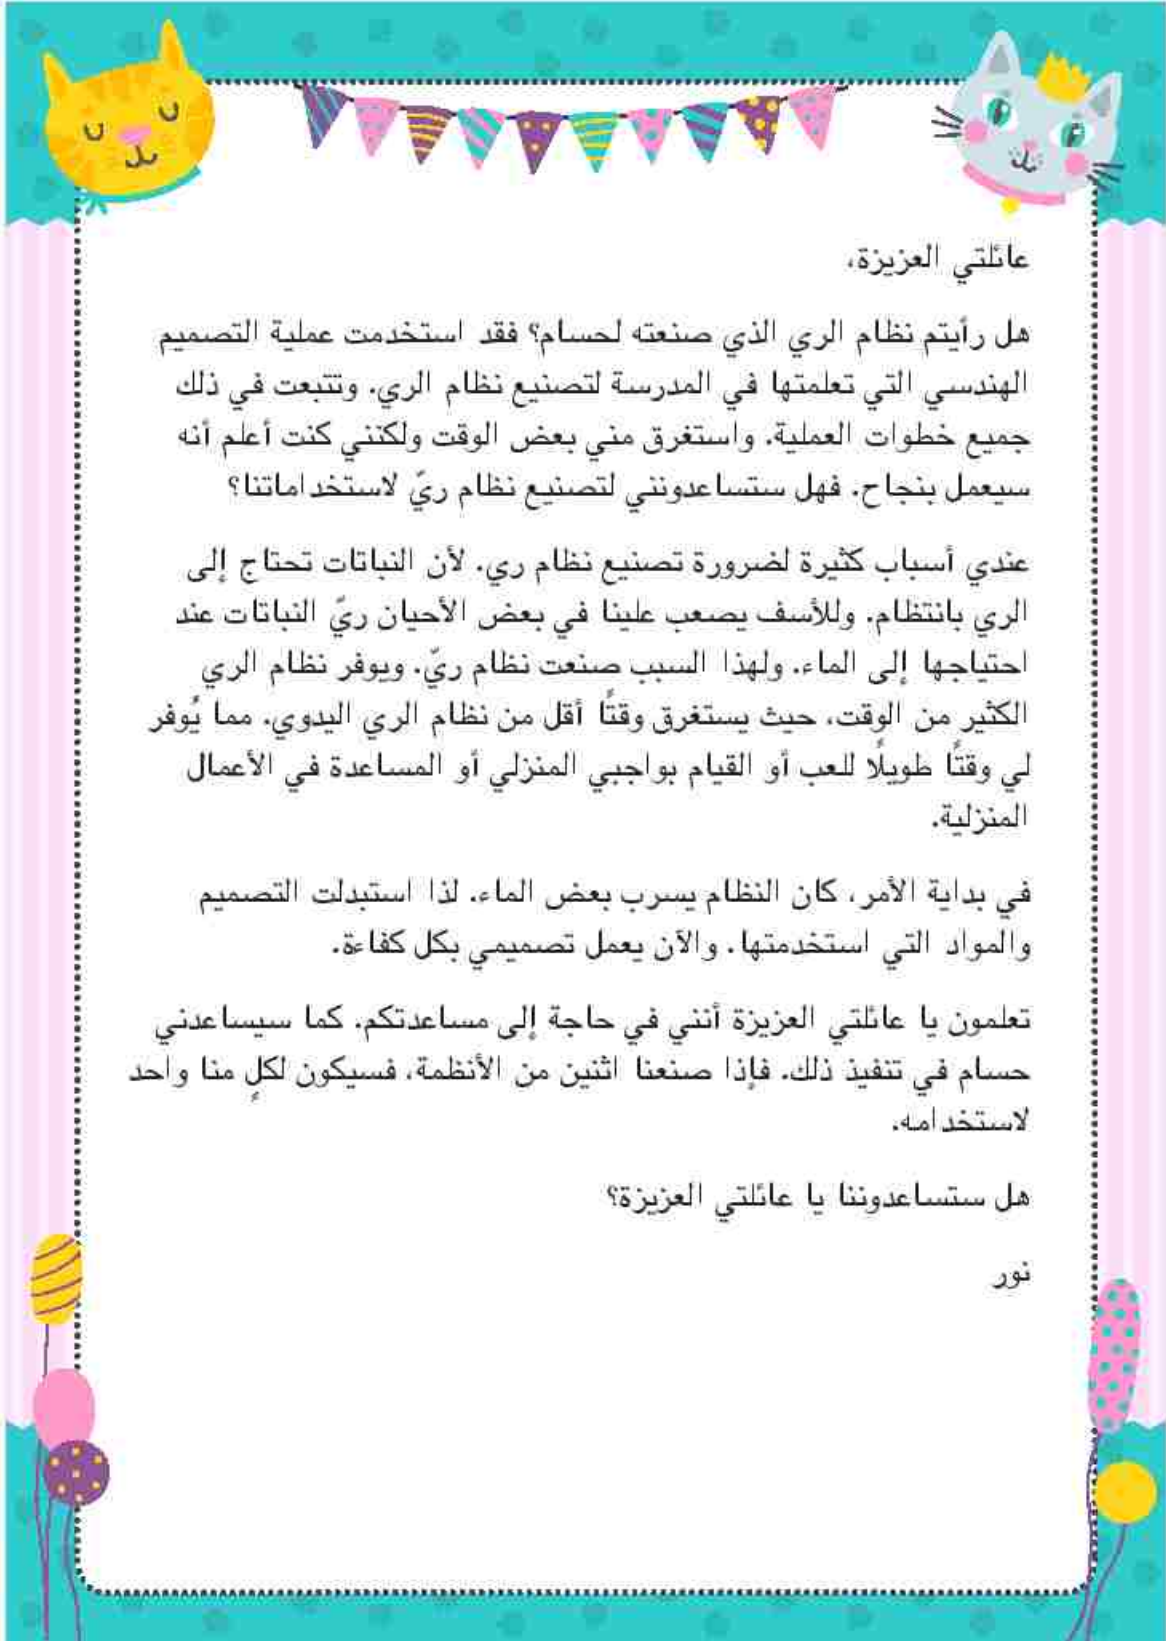 عائلتي العزيزة،
هل رأيتم نظام الري الذي صنعته لحسام؟ فقد استخدمت عملية التصميم
الهندسي التي تعلمتها في المدرسة لتصنيع نظام الري. وتتبعت في ذلك
جميع خطوات العملية. واستغرق مني بعض الوقت ولكنني كنت أعلم أنه
سيعمل بنجاح. فهل ستساعدونني لتصنيع نظام ريّ لاستخداماتنا؟
عندي أسباب كثيرة لضرورة تصنيع نظام ري. لأن النباتات تحتاج إلى
الري بانتظام. وللأسف يصعب علينا في بعض الأحيان ريّ النباتات عند
احتياجها إلى الماء. ولهذا السبب صنعت نظام ريّ. ويوفر نظام الري
الكثير من الوقت، حيث يستغرق وقتًا أقل من نظام الري اليدوي. مما يُوفر
لي وقتًا طويلًا للعب أو القيام بواجبي المنزلي أو المساعدة في الأعمال
المنزلية.
في بداية الأمر، كان النظام يسرب بعض الماء. لذا استبدلت التصميم
والمواد التي استخدمتها. والآن يعمل تصميمي بكل كفاءة.
تعلمون يا عائلتي العزيزة أنني في حاجة إلى مساعدتكم. كما سيساعدني
حسام في تنفيذ ذلك. فإذا صنعنا اثنين من الأنظمة، فسيكون لكلٍ منا واحد
لاستخدامه.
هل ستساعدوننا يا عائلتي العزيزة؟
نور